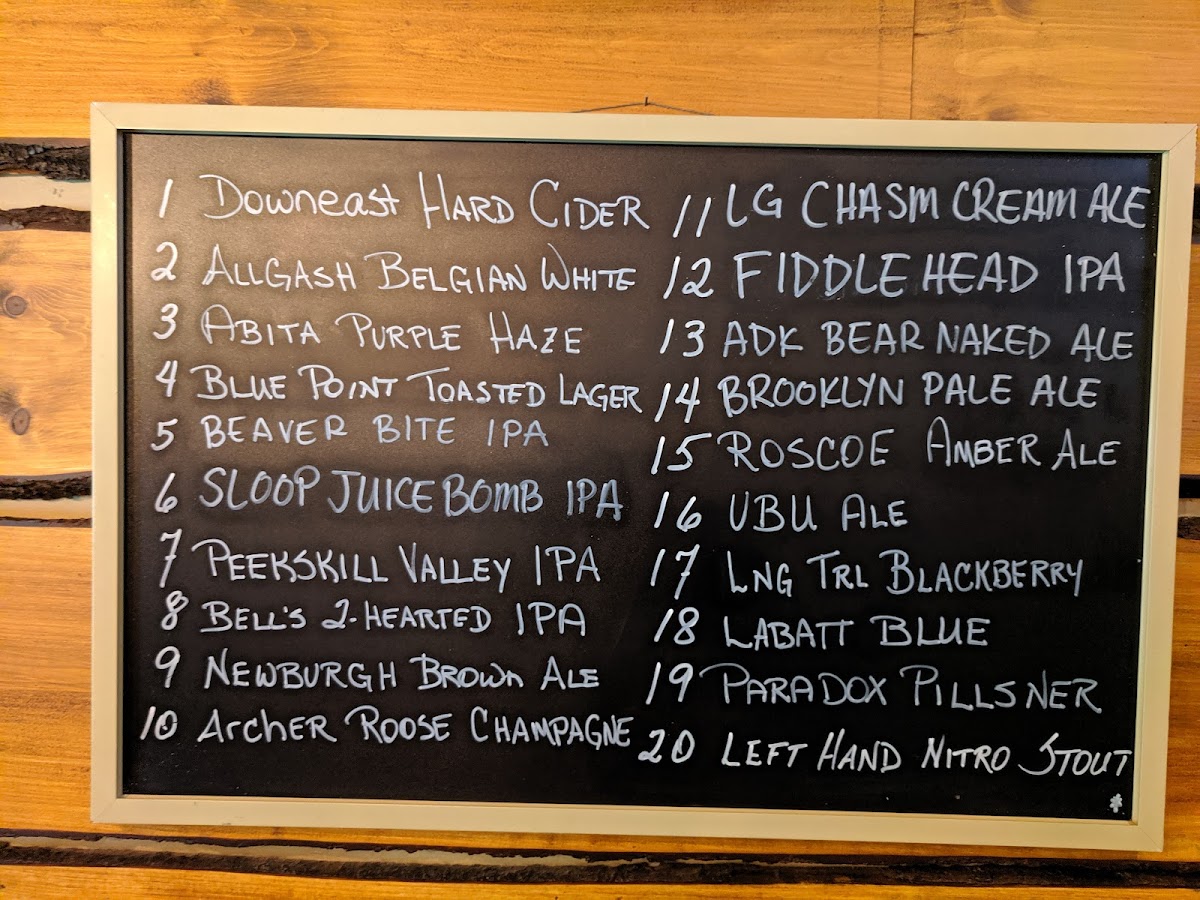 1 Downeast Hard Cider
2 Allgash Belgian White
3 Abita Purple Haze
4 Blue Point Toasted Lager
5 BEAVER BITE IPA
6 SLOOP JUICE BOMB IPA
7 Peekskill Valley IPA
8 Bell's 2-Hearted IPA
9 Newburgh Brown Ale
10 Archer Roose Champagne
11 LG CHASM CREAM ALE
12 FIDDLEHEAD IPA
13 ADK BEAR NAKED ALE
14 BROOKLYN PALE ALE
15 ROSCOE AMBER ALE
16 UBU ALE
17 LNG TRL BLACKBERRY
18 LABATT BLUE
19 PARADOX PILLSNER
20 LEFT HAND NITRO STOUT